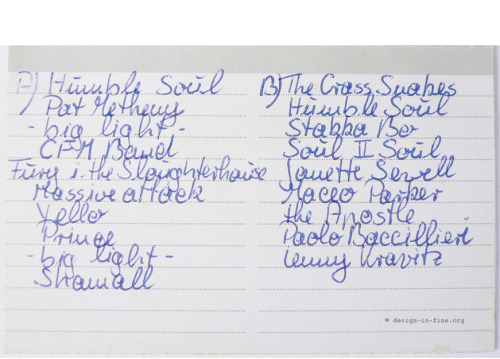 A) Humble Soul
Pat Metheny
- big light -
CFM Band
Fury i. the Slaughterhouse
Massive attack
Yello
Prince
- big light -
Shamall
B) The Grass Snakes
Humble Soul
Stakka Bo
Soul II Soul
Janette Sewell
Maceo Parker
the Apostle
Paolo Baccilieri
Lenny Kravitz
© design-in-fine.org